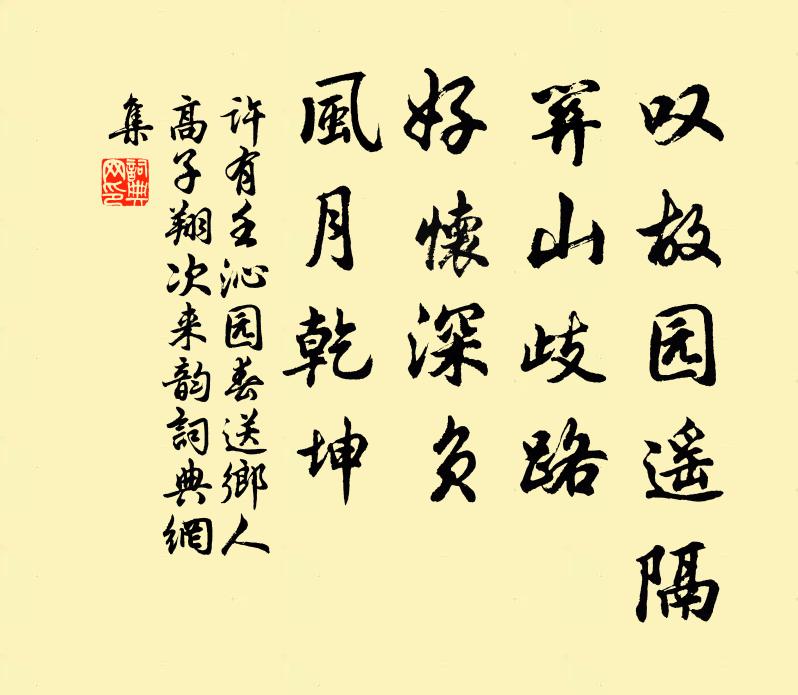 叹故园遥隔
關山歧路
好懷深负
風月乾坤
许有壬沁园春送鄉人
高子翔次来韵詞典網
集
詞典
网印